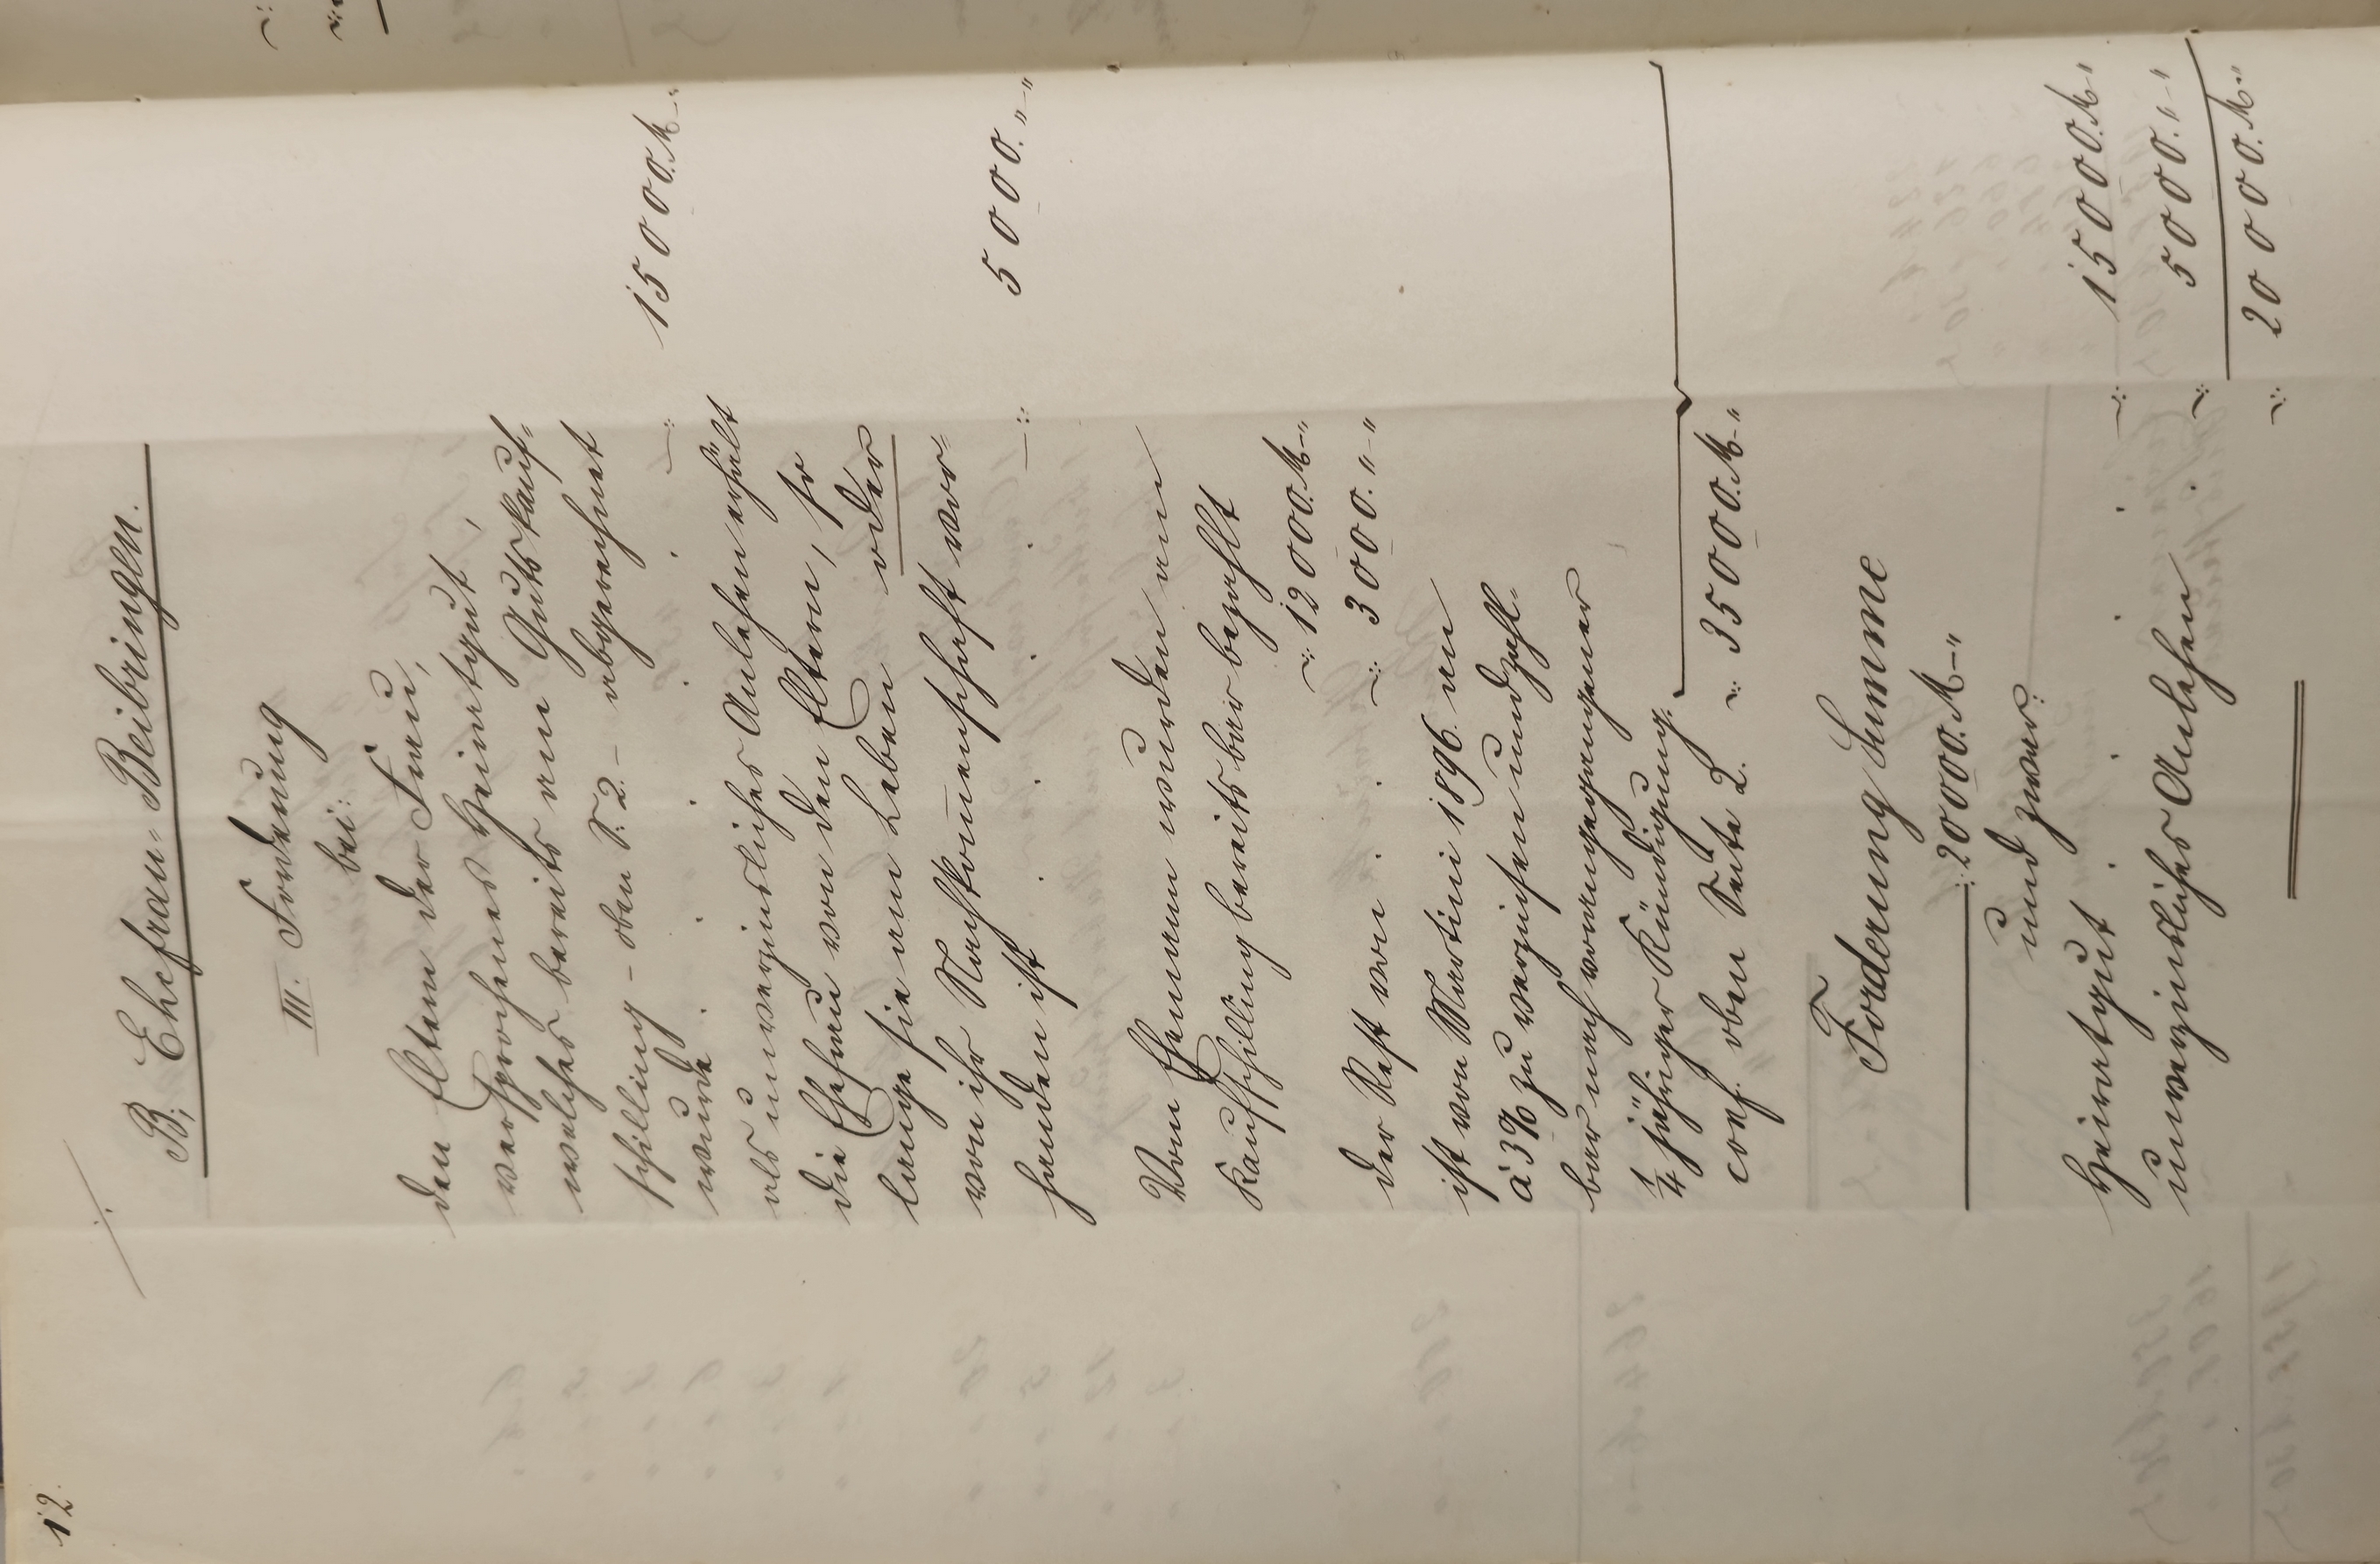 12.
B., Ehefrau=Beibringen.
III. Forderung
bei:
den Eltern der Frau,
versprochenes Heiratgut,
welches bereits am Gutskauf=
schilling – oben S. 2. – abgerechnet
wurde . . . . . 15000.M.–"
als unverzinsliches Anlehen erhält
die Ehefrau von den Eltern, so
lange sie am Leben oder
von ihr Nachkommenschaft vor=
handen ist . . . . 5000. "–"
Vom Ehemann wurden am
Kaufschilling bereits bar bezahlt
12000.M–"
der Rest von . . . 3000. "–"
ist von Martini 1896. an
à 3% zu verzinsen und zahl=
bar nach vorangegangener
1/4 jähriger Kündigung.
conf. oben Seite 2. 35000.M–"
Forderung Summe
20000.M–"
und zwar:
Heiratgut . . . . . 15000.M–"
unverzinsliches Anlehen . 5000. "–"
20000.M–"